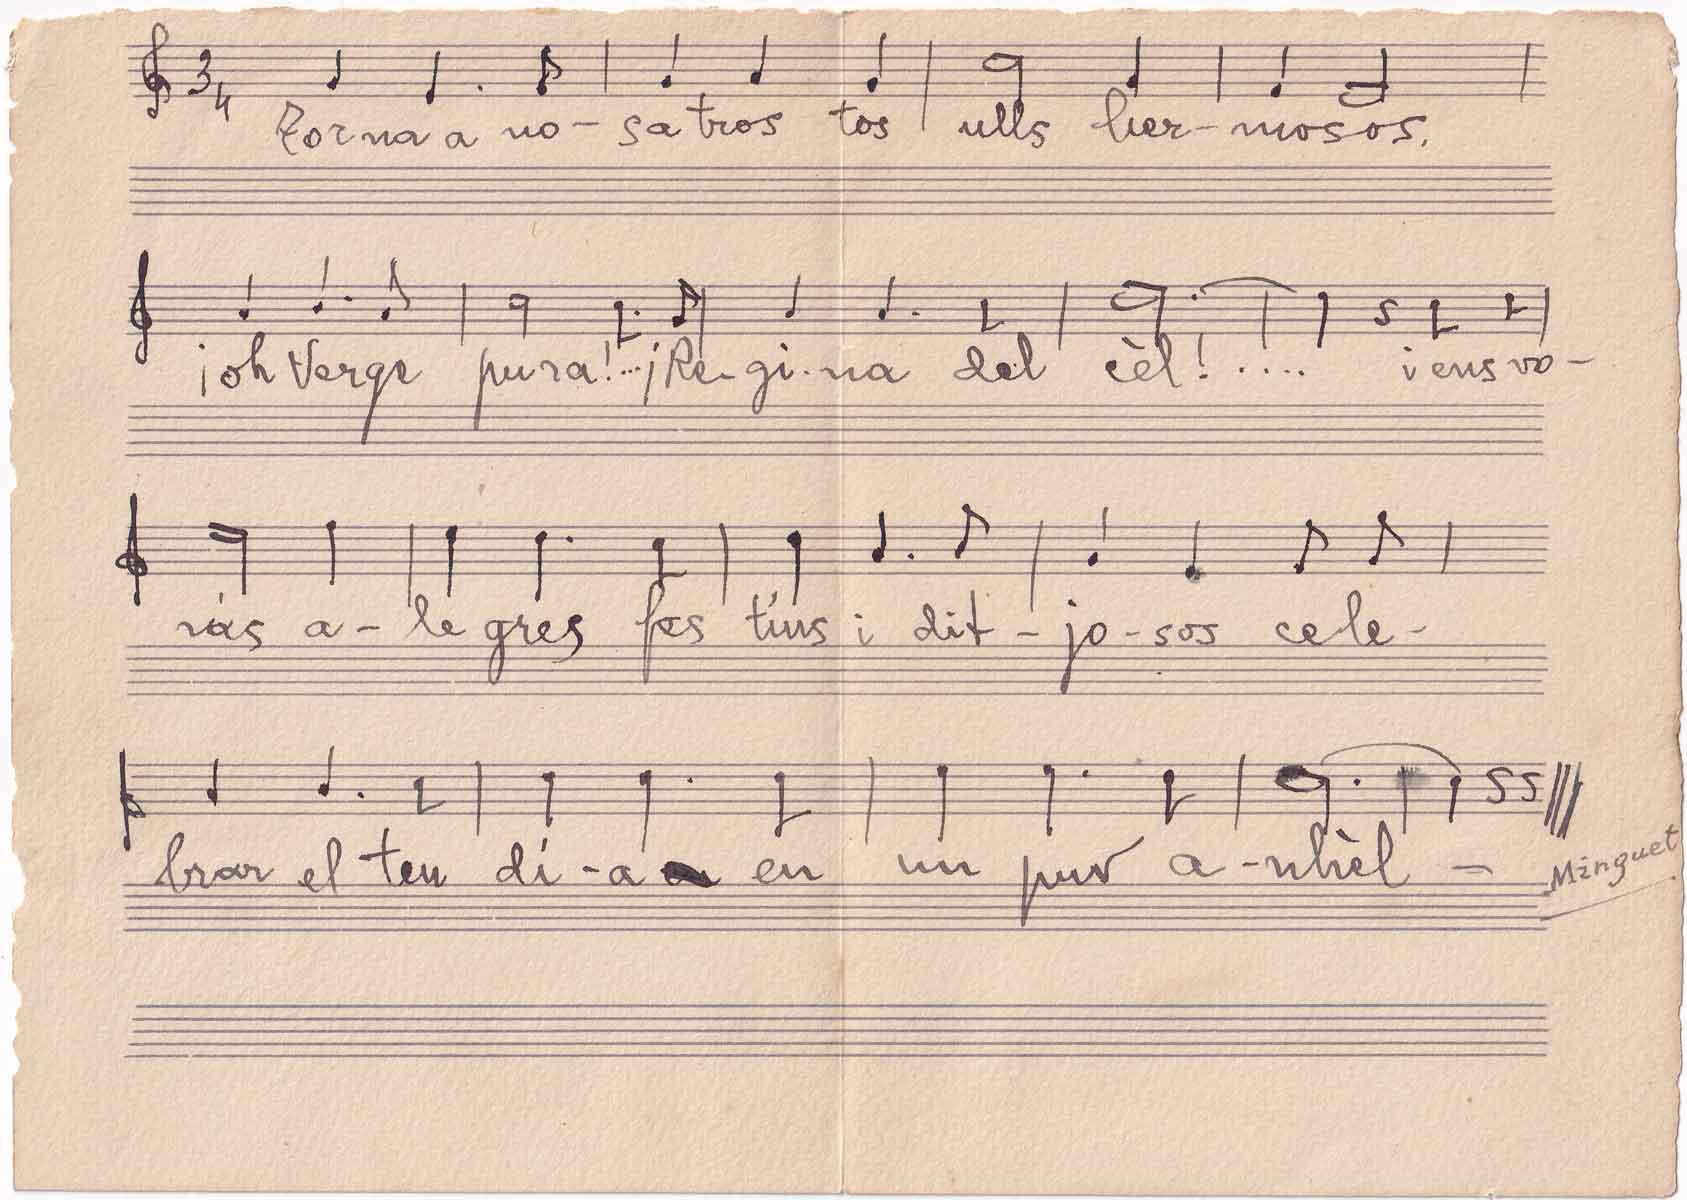 3 4
Torna a no- sa tros tos ulls her- mosos.
¡oh Verge pura!... ¡Re- gi- na del cèl!.... i ens vo-
ràs a- le gres fes tius i dit- jo- sos cele-
brar el teu dí-a en un pur a-nhèl -
Minguet